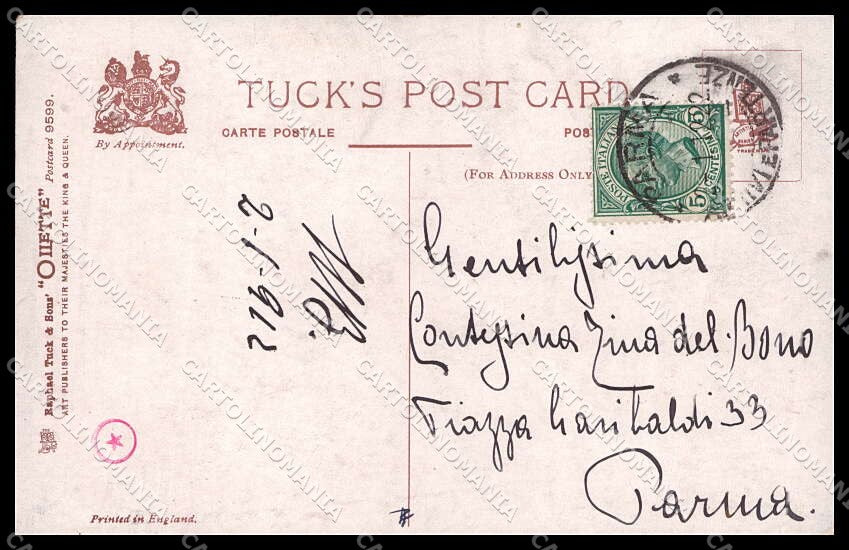 TUCK'S POST CARD
CARTE POSTALE
POST
(FOR ADDRESS ONLY
By Appointment.
Raphael Tuck & Sons' "OILETTE" Postcard 9599.
ART PUBLISHERS TO THEIR MAJESTIES THE KING & QUEEN.
Printed in England.
2-1-912
POSTE ITALIANE
CENTESIMI
5
PARMA
Gentilissima
Contessina Zina del Bono
Piazza Garibaldi 33
Parma.
CARTOLINOMANIA